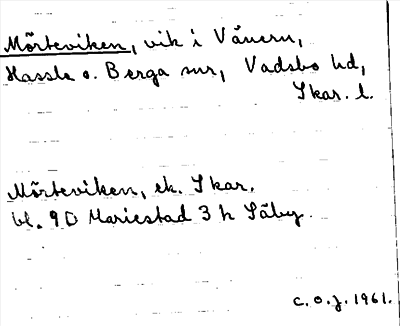 Mörteviken, vik i Vänern,
Hassle o. Berga snr, Vadsbo hd,
Skar. l.
Mörteviken, ek. Skar.
bl. 9D Mariestad 3 h Säby.
c.o.j. 1961.